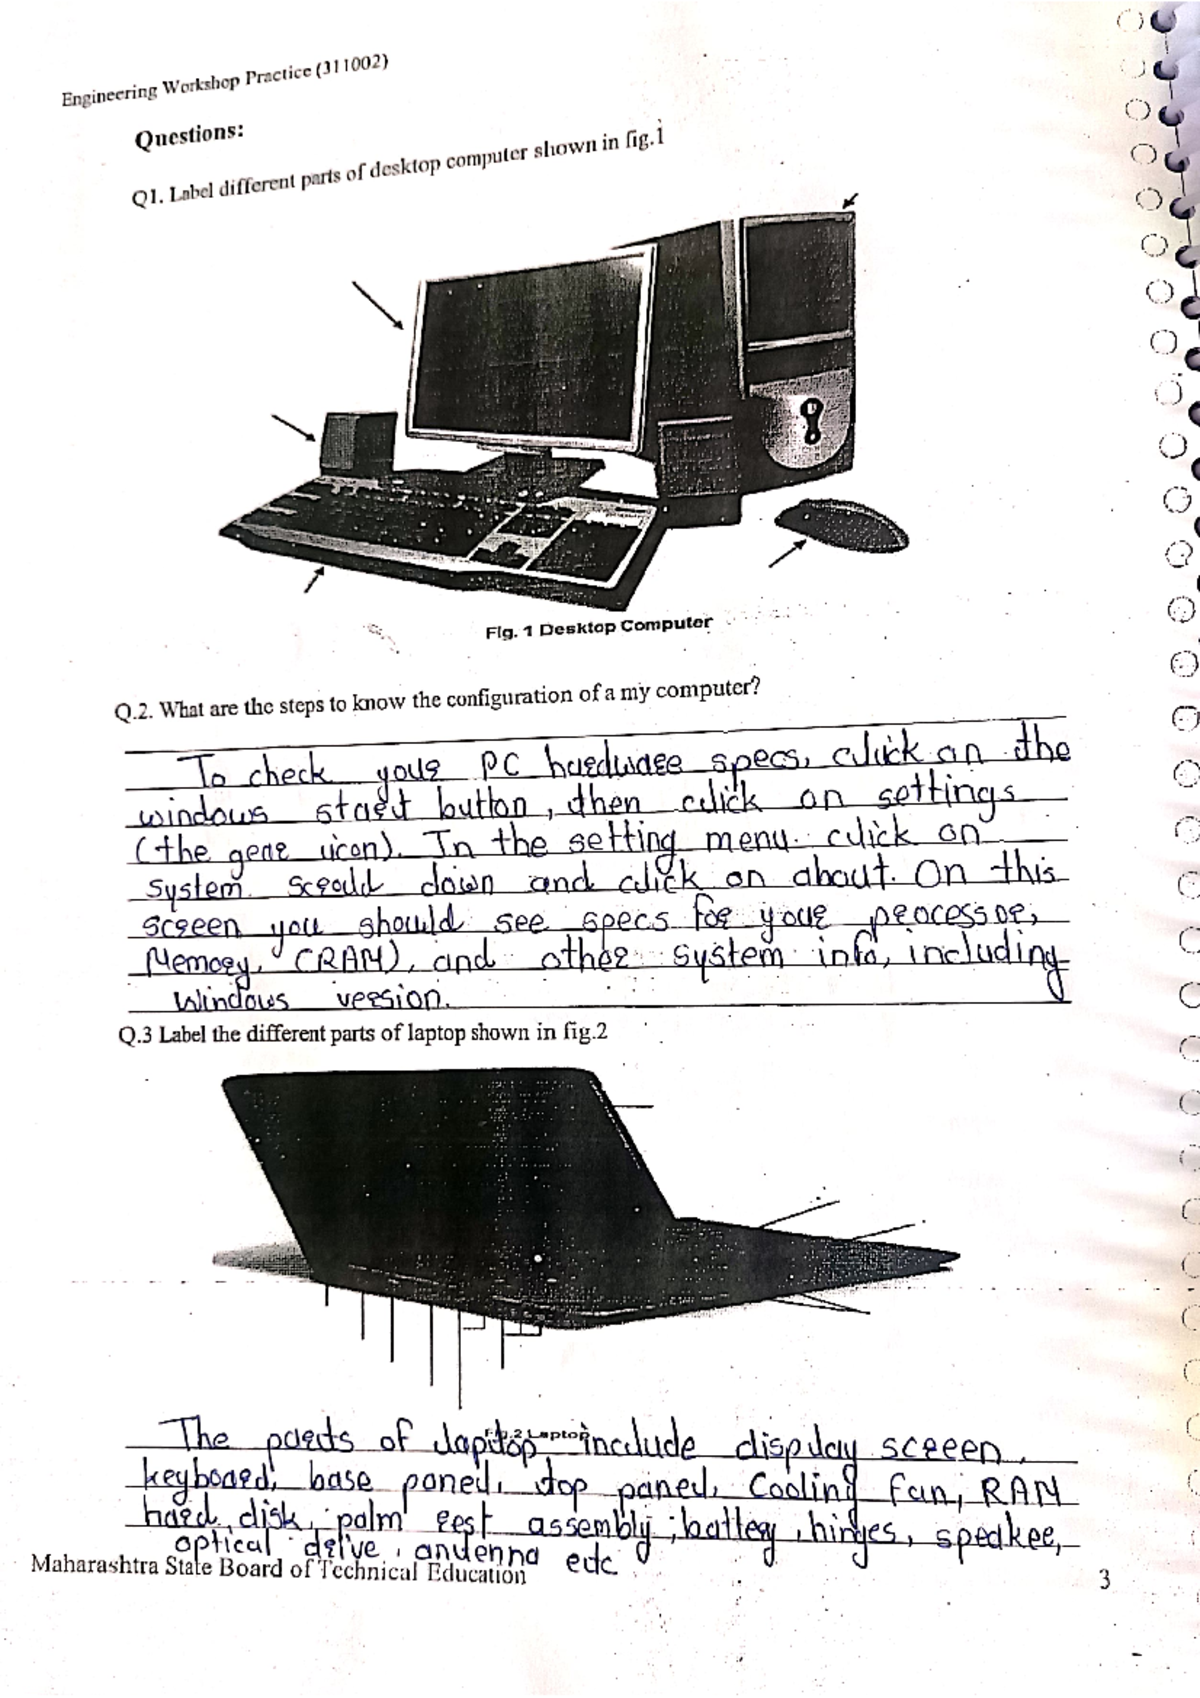 Engineering Workshop Practice (311002)
Questions:
Q1. Label different parts of desktop computer shown in fig.1
Fig. 1 Desktop Computer
Q.2. What are the steps to know the configuration of a my computer?
To check your PC hardware specs, click on the
windows start button, then click on settings
(the gear icon). In the setting menu. click on
system. scroll down and click on about. On this
screen you should see specs for your processor,
Memory, (RAM), and other system info, including
windows version.
Q.3 Label the different parts of laptop shown in fig.2
The parts of laptop include display screen,
keyboard, base paned, top paned, Cooling fan, RAM
hard disk, palm rest assembly, battery, hinges, speaker,
optical drive, antenna etc
Maharashtra State Board of Technical Education
3